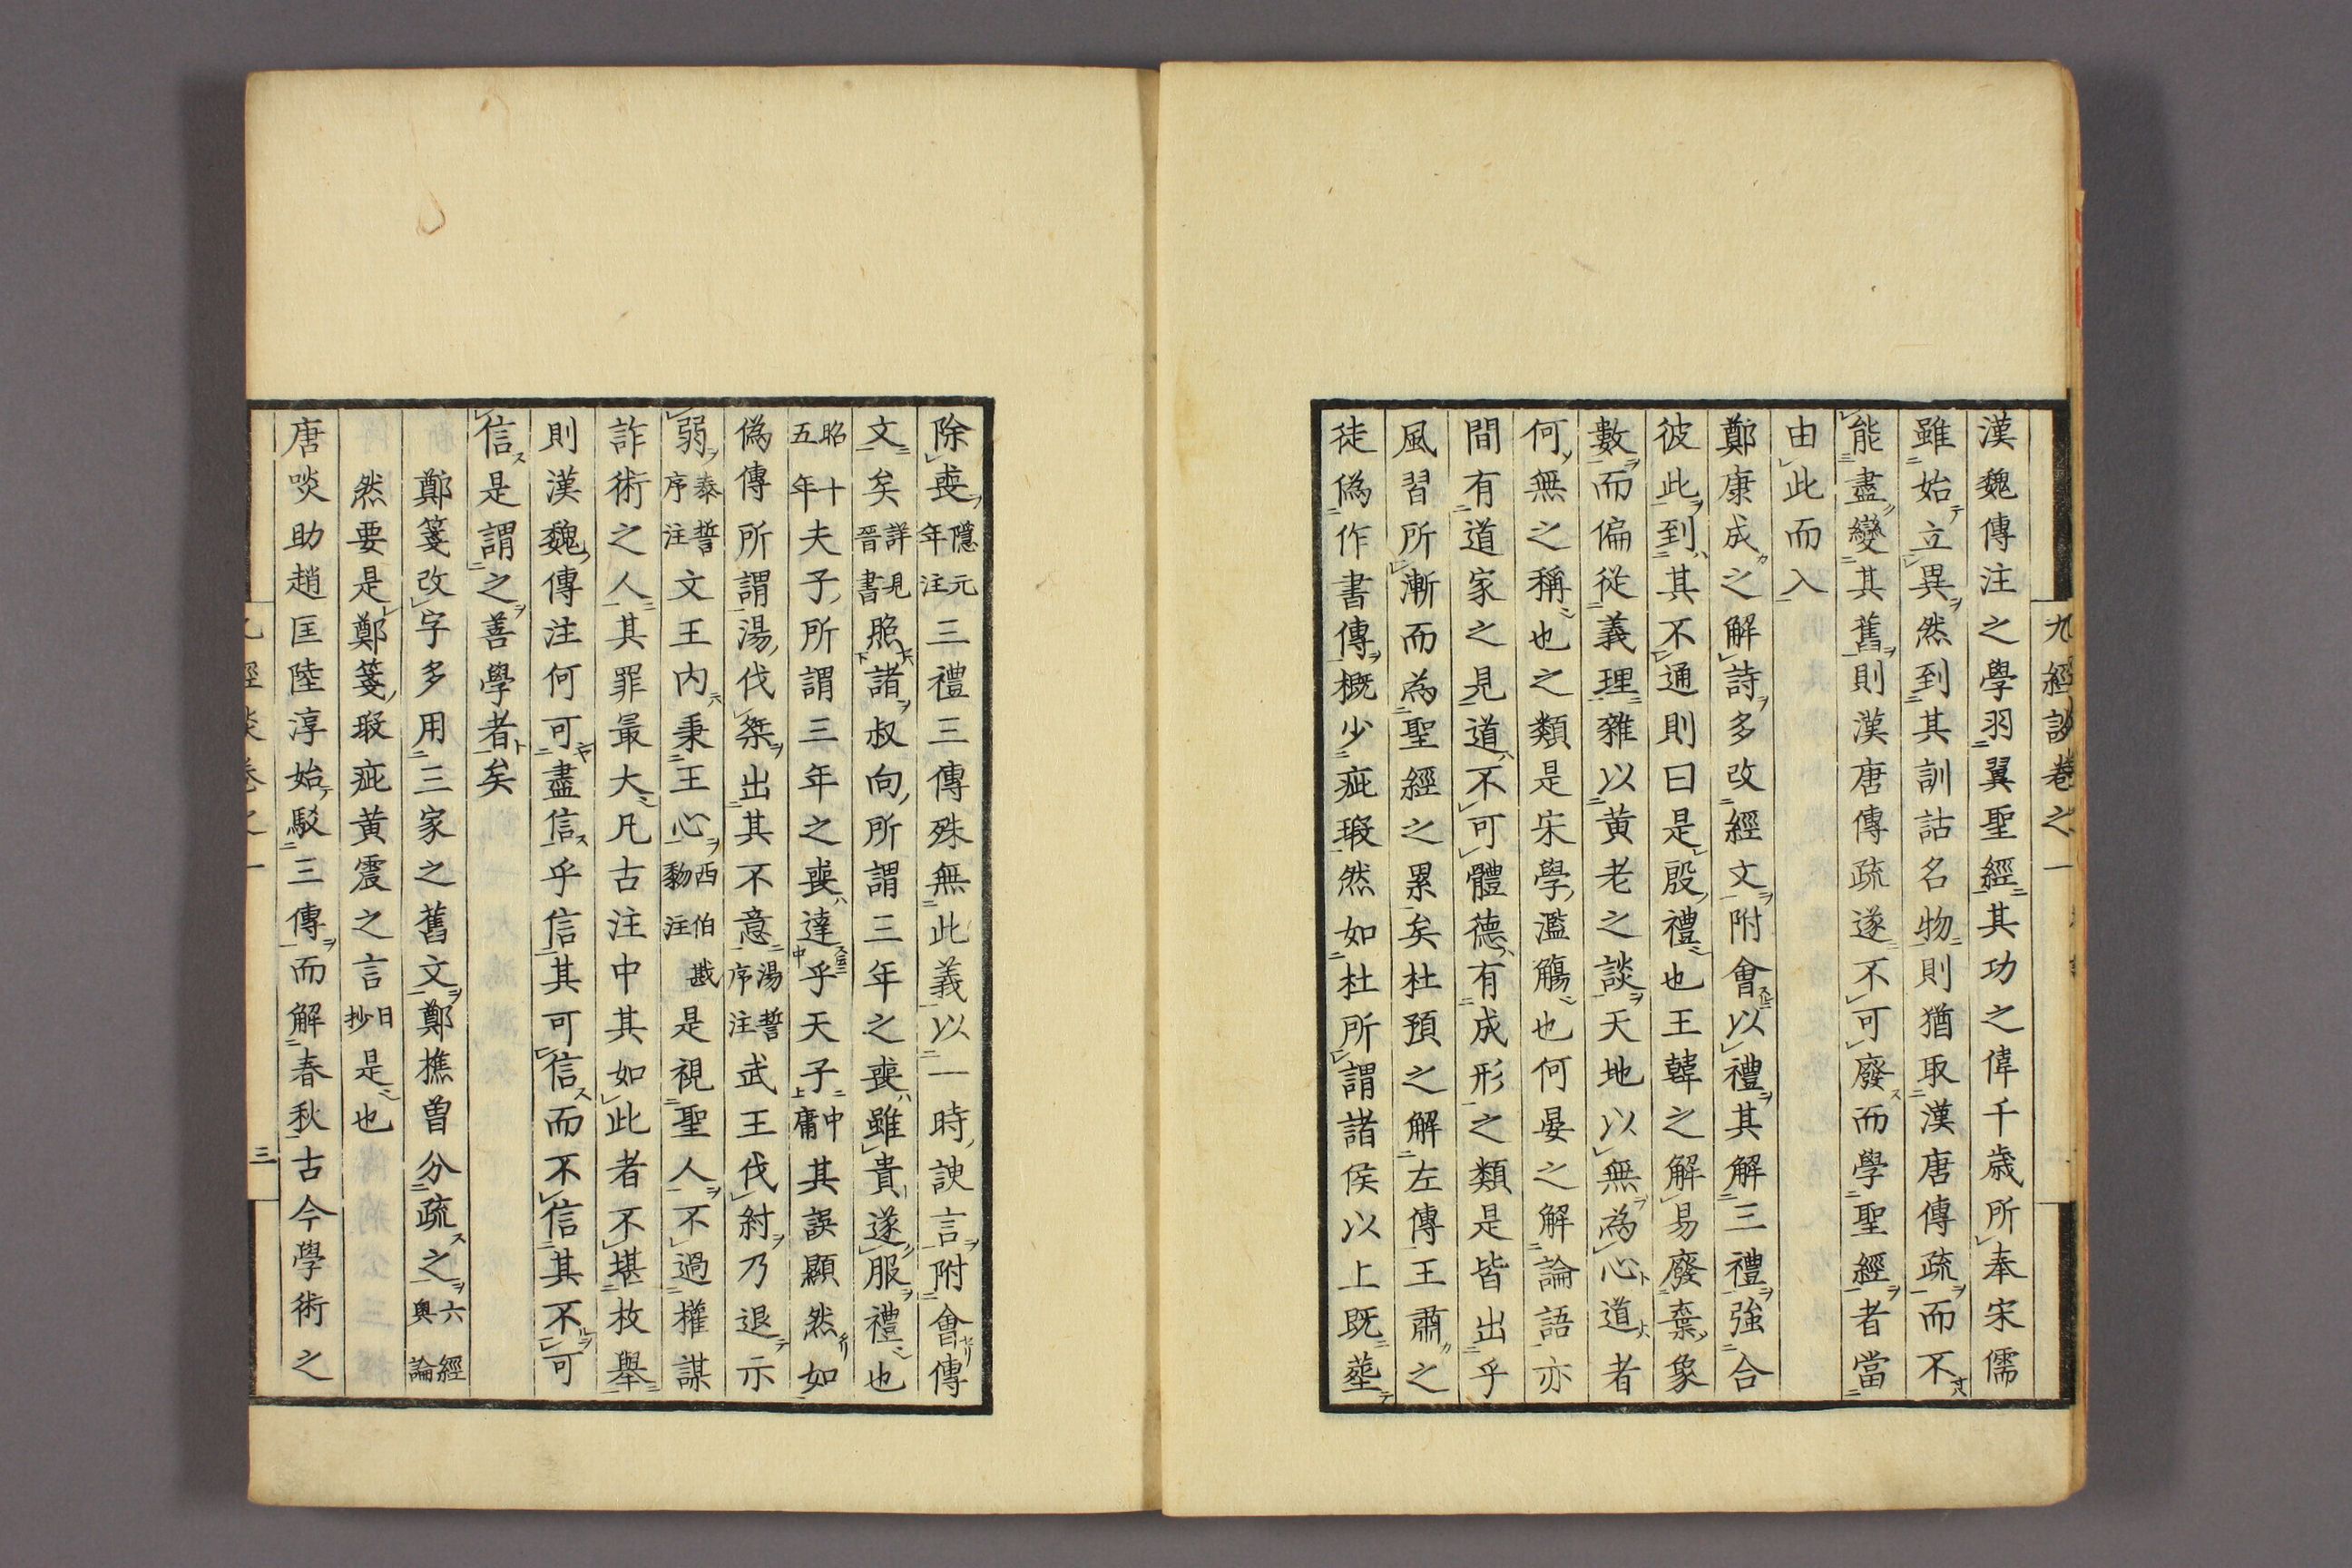 九經談卷之一
漢魏傳注之學羽翼聖經其功之偉千歳所奉宋儒
雖始立異然到其訓詁名物則猶取漢唐傳疏而不
能盡變其舊則漢唐傳疏遂不可廢而學聖經者當
由此而入
鄭康成之解詩多改經文附會以禮其解三禮強合
彼此到其不通則曰是殷禮也王韓之解易廢棄象
數而偏從義理雜以黄老之談天地以無為心道者
何無之稱也之類是宋學濫觴也何晏之解論語亦
間有道家之見道不可體德有成形之類是皆出乎
風習所漸而為聖經之累矣杜預之解左傳王肅之
徒偽作書傳概少疵瑕然如杜所謂諸侯以上既塟
除喪隱元年注三禮三傳殊無此義以一時諛言附會傳
文矣詳見晉書照諸叔向所謂三年之喪雖貴遂服禮也
昭十五年夫子所謂三年之喪達乎天子中庸其誤顯然如
偽傳所謂湯伐桀出其不意湯誓序注武王伐紂乃退示
弱泰誓序注文王内秉王心西伯戡黎注是視聖人不過權謀
詐術之人其罪最大凡古注中其如此者不堪枚舉
則漢魏傳注何可盡信乎信其可信而不信其不可
信是謂之善學者矣
鄭箋改字多用三家之舊文鄭樵曽分疏之六經奥論
然要是鄭箋瑕疵黄震之言日抄是也
唐啖助趙匡陸淳始駁三傳而解春秋古今學術之
三